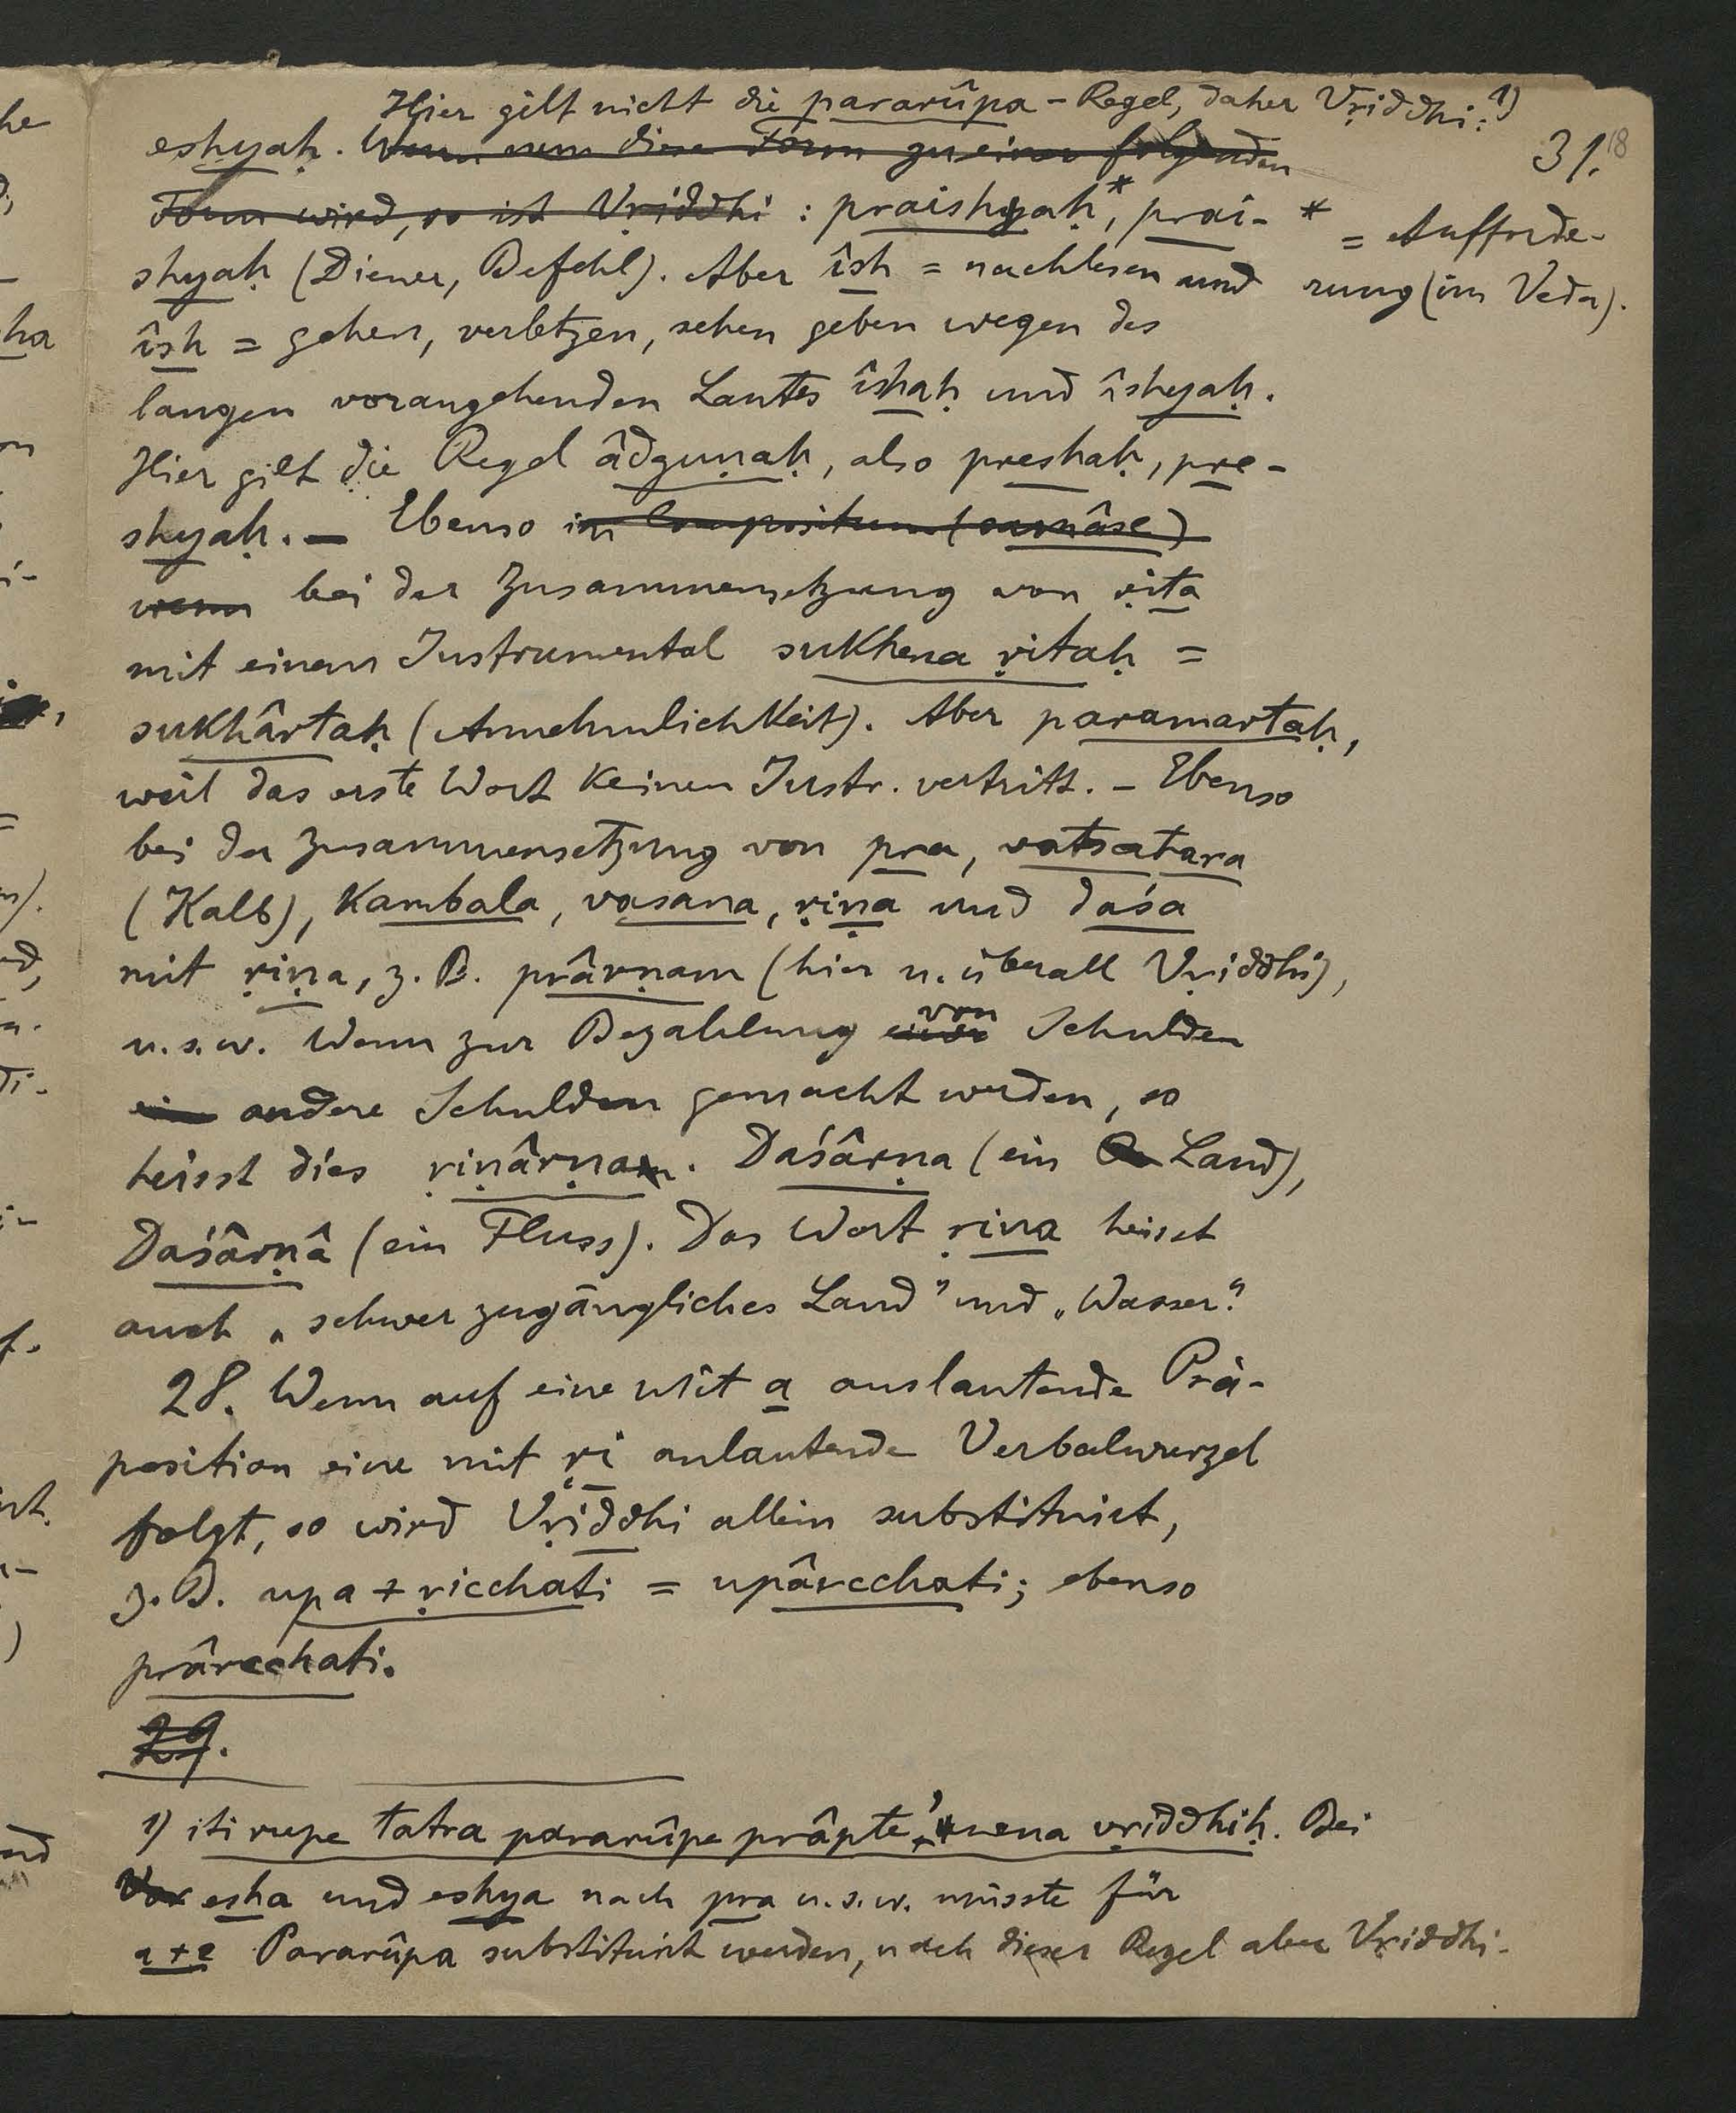 Hier gilt nicht die pararûpa-Regel, daher Vṛiddhi:¹)
eshyaḥ. Wenn nun diese Form zu einer folgenden
31.
18
Form wird, so ist Vṛiddhi : praishyaḥ*, prai-
shyaḥ (Diener, Befehl). Aber îsh = nachlesen und
* = Aufforde-
rung (im Veda).
îsh = gehen, verletzen, sehen geben wegen des
langen vorangehenden Lautes îshaḥ und îshyaḥ.
Hier gilt die Regel âdguṇaḥ, also preshaḥ, pre-
shyaḥ. — Ebenso im Compositum (samâse)
wenn bei der Zusammensetzung von ṛita
mit einem Instrumental sukhena ṛitaḥ =
sukhârtaḥ (Annehmlichkeit). Aber paramartaḥ,
weil das erste Wort keinen Instr. vertritt. – Ebenso
bei der Zusammensetzung von pra, vatsatara
(Kalb), Kambala, vasana, ṛiṇa und daśa
mit ṛiṇa, z. B. prârṇam (hier u. überall Vṛiddhi),
u. s. w. Wenn zur Bezahlung von Schulden
ein andere Schulden gemacht werden, so
heisst dies ṛiṇârṇam. Daśârṇa (ein Land),
Daśârṇâ (ein Fluss). Das Wort ṛina heisst
auch „schwer zugängliches Land" und „Wasser."
28. Wenn auf eine mit a auslautende Prä-
position eine mit ṛi anlautende Verbalwurzel
folgt, so wird Vṛiddhi allein substituirt,
z. B. upa + ṛicchati = upârcchati; ebenso
prârcchati.
29.
1) iti rupe tatra pararûpe prâpte 'nena vṛiddhiḥ. Bei
Vor esha und eshya nach pra u. s. w. müsste für
a + e Pararûpa substituirt werden, nach dieser Regel aber Vṛiddhi.